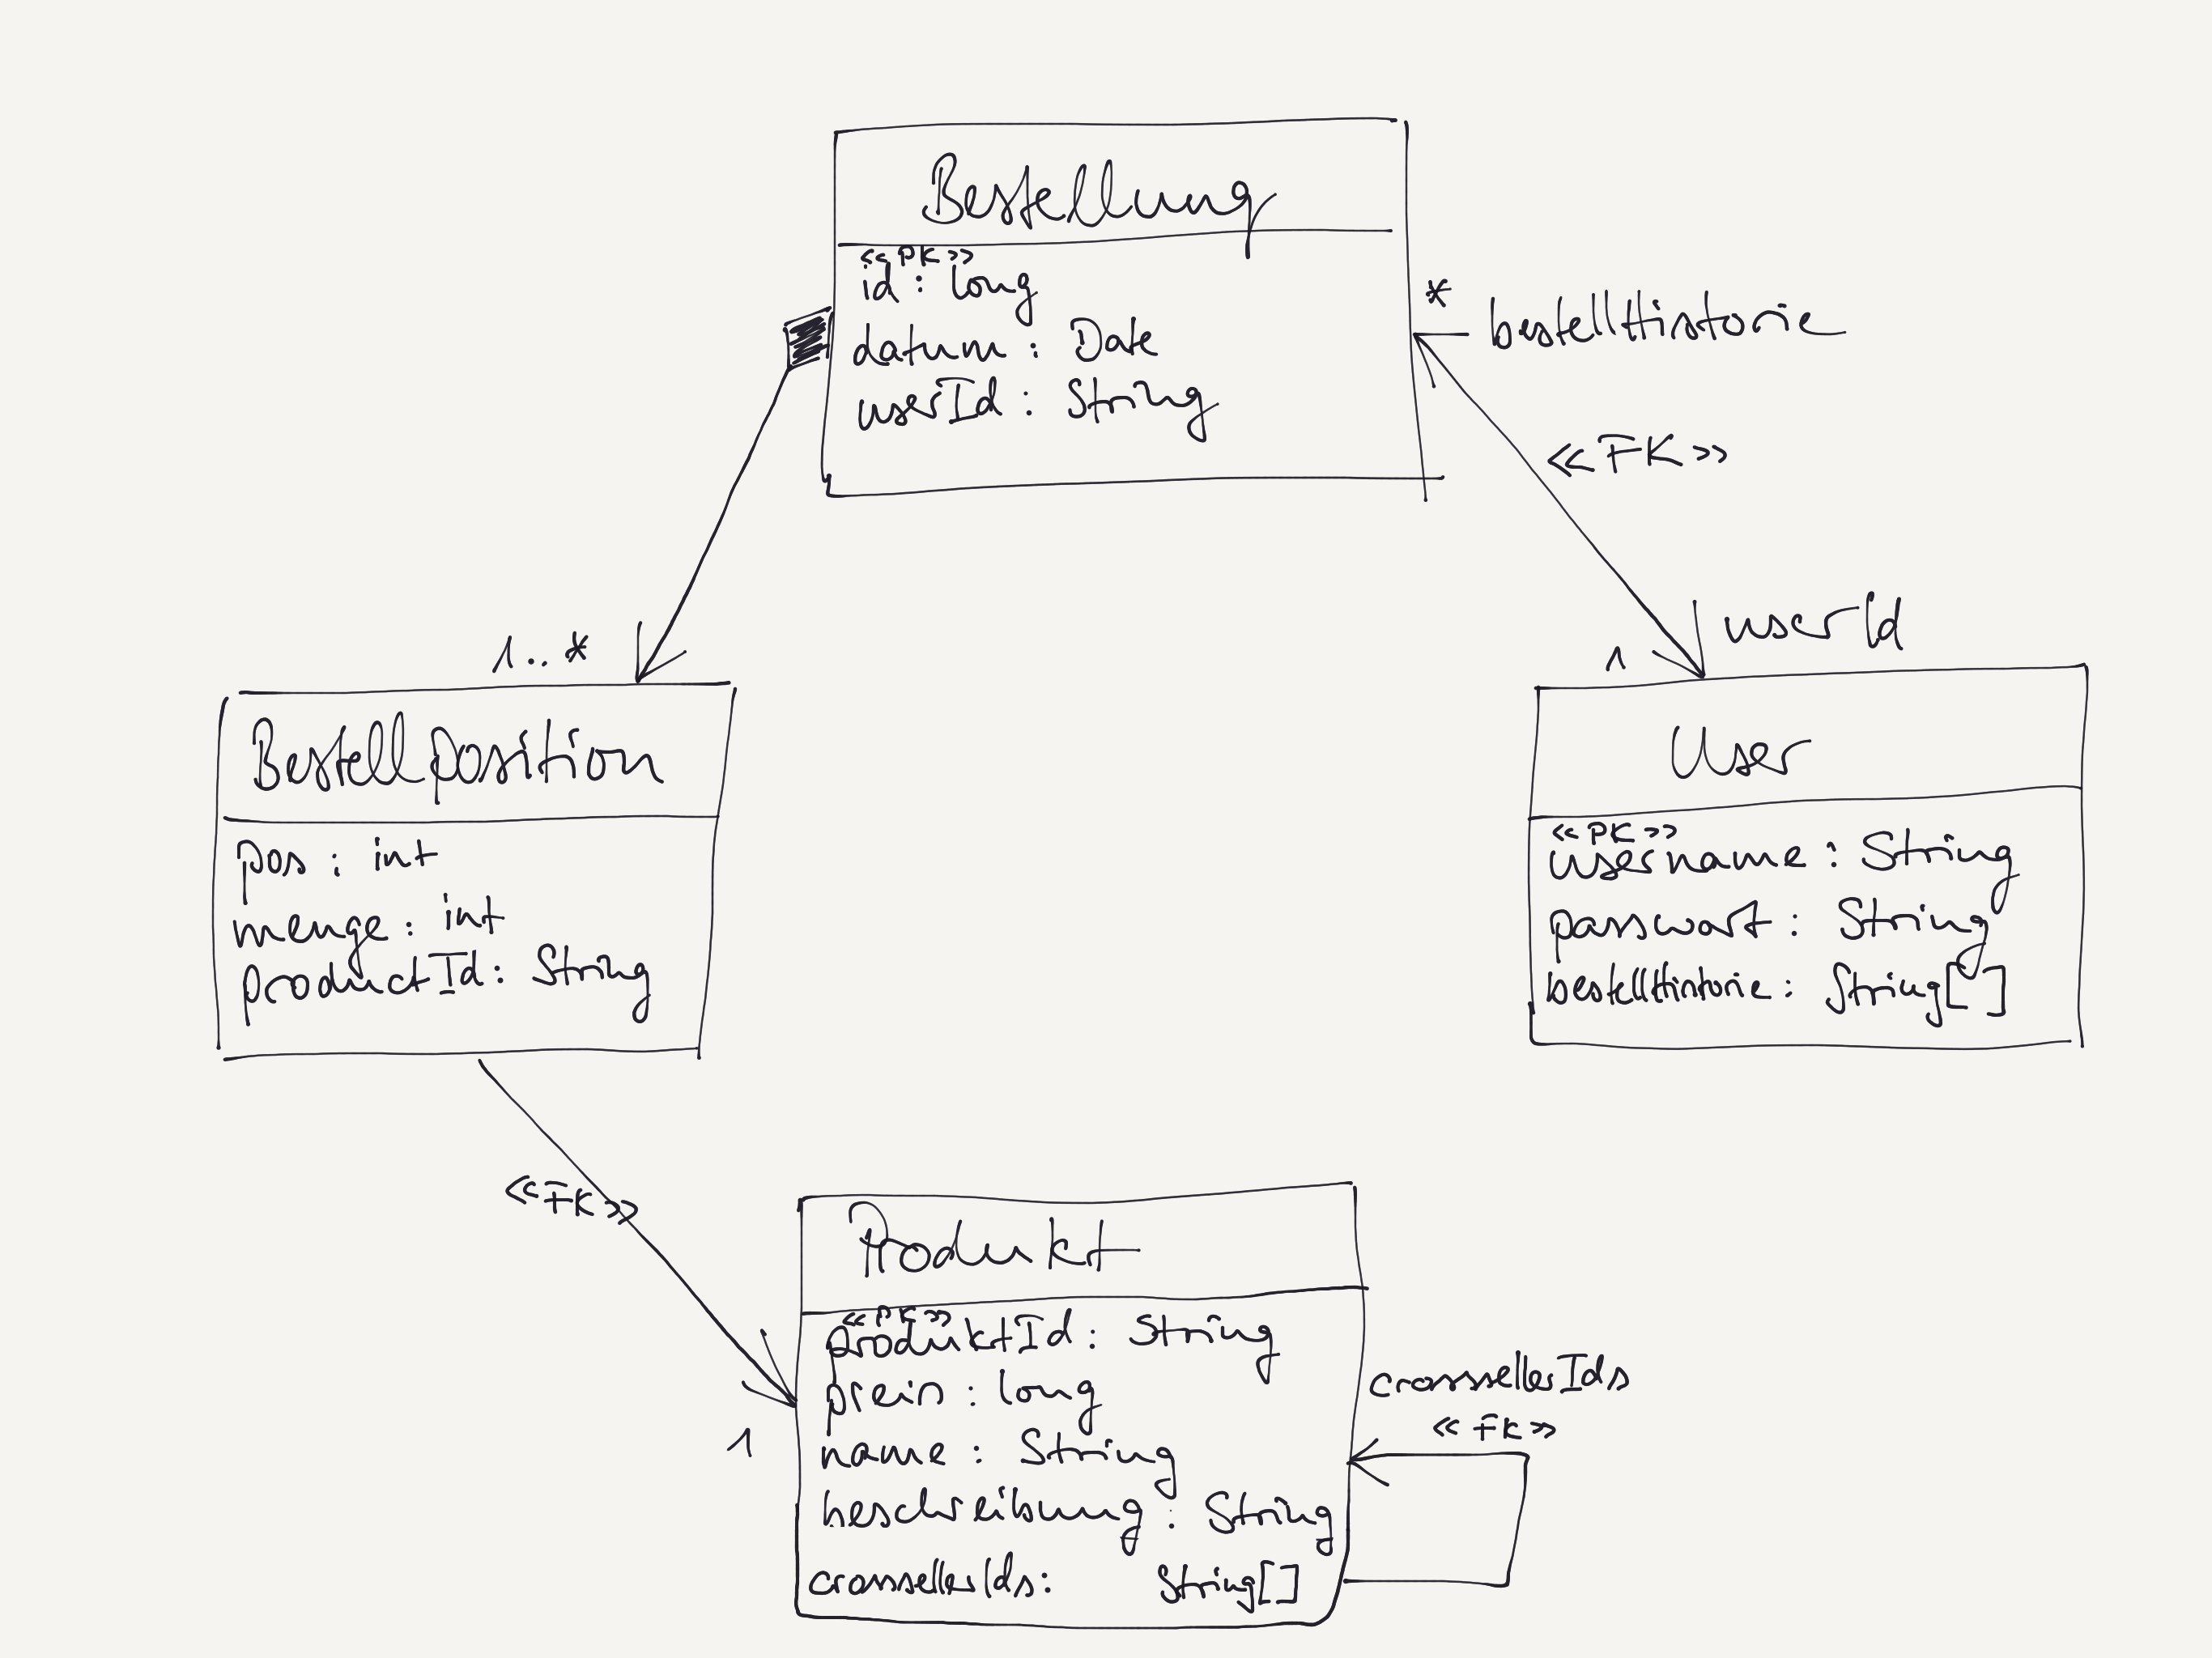 Bestellung
<<PK>>
id : long
datum : Date
userId : String
* bestellHistorie
<<FK>>
1..*
1
userId
Bestellposition
pos : int
menge : int
productId : String
User
<<PK>>
username : String
passwort : String
bestellHistorie : String[]
<<FK>>
1
Produkt
<<PK>>
produktId : String
preis : long
name : String
beschreibung : String
crosssellerIds : String[]
crosssellerIds
<<FK>>